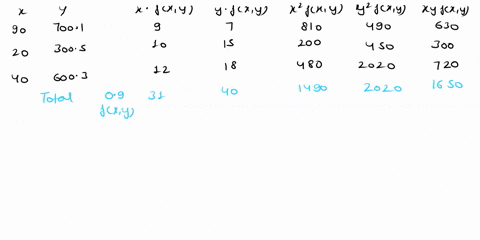 x y x·f(x,y) y·f(x,y) x²f(x,y) y²f(x,y) xyf(x,y)
90 700.1 9 7 810 490 630
20 300.5 10 15 200 450 300
40 600.3 12 18 480 2020 720
Total 0.9 31 40 1490 2020 1650
f(x,y)